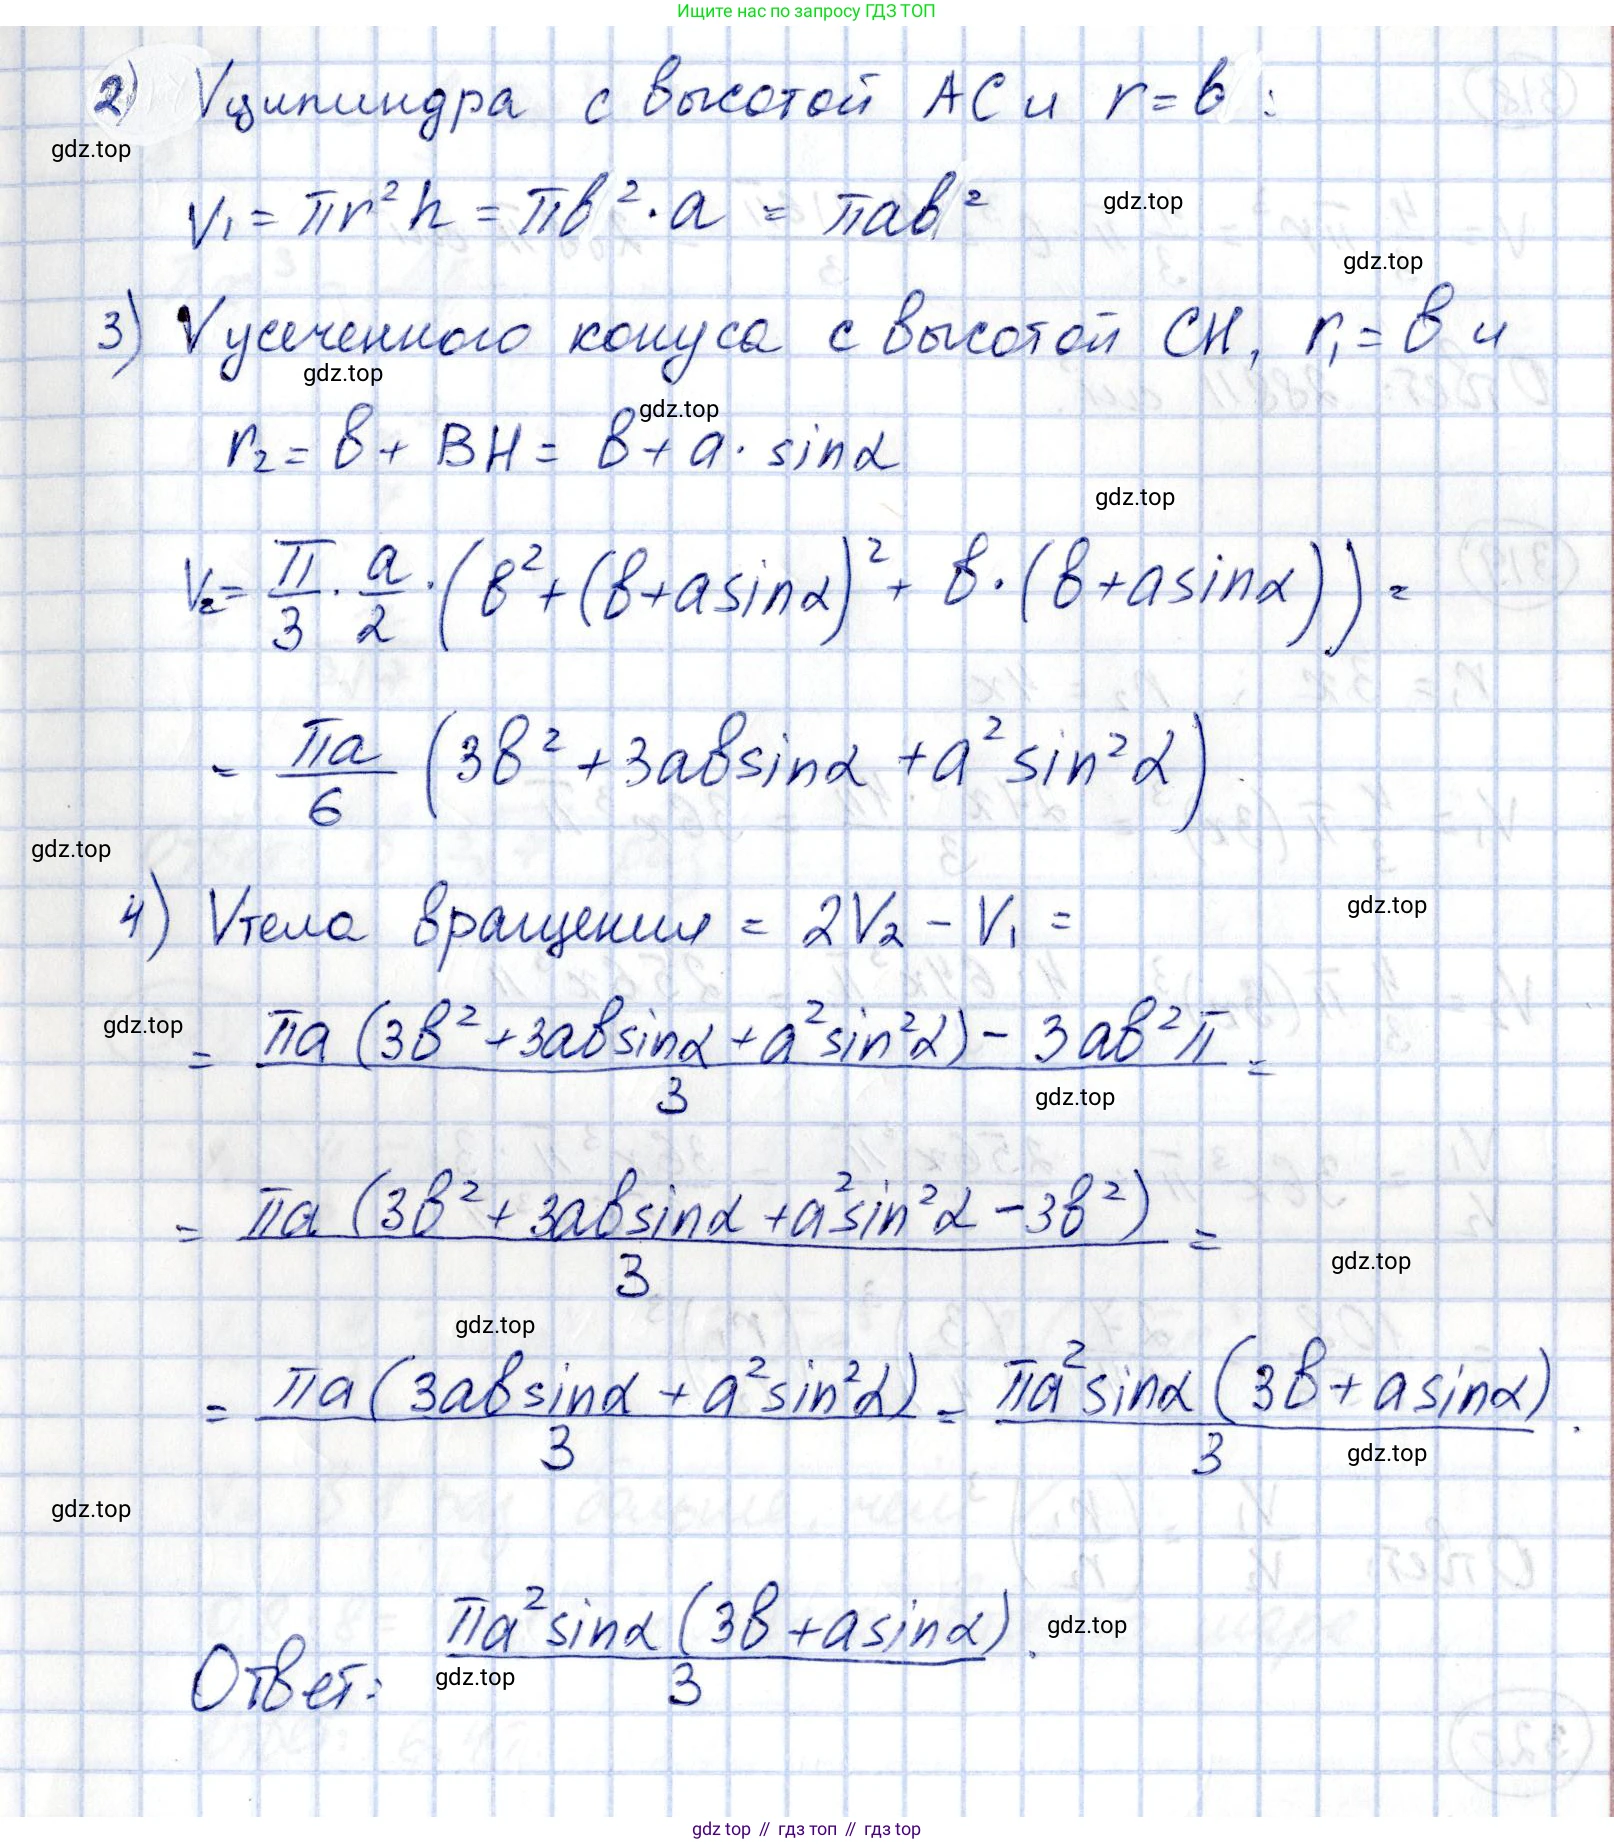 Ищите нас по запросу ГДЗ ТОП
2) Vцилиндра с высотой AC и r = b :
gdz.top
V₁ = πr²h = πb² · a = πab²
gdz.top
gdz.top
3) Vусеченного конуса с высотой CH, r₁ = b и
gdz.top
gdz.top
r₂ = b + BH = b + a · sinα
gdz.top
V₂ = π/3 · a/2 · (b² + (b + a sinα)² + b · (b + a sinα)) =
= πa/6 (3b² + 3ab sinα + a² sin²α)
gdz.top
4) Vтела вращения = 2V₂ − V₁ =
gdz.top
gdz.top
= πa (3b² + 3ab sinα + a² sin²α) − 3ab²π / 3 =
gdz.top
= πa (3b² + 3ab sinα + a² sin²α − 3b²) / 3 =
gdz.top
gdz.top
= πa (3ab sinα + a² sin²α) / 3 = πa² sinα (3b + a sinα) / 3 .
gdz.top
gdz.top
Ответ: πa² sinα (3b + a sinα) / 3 .
gdz.top
gdz.top
gdz top // гдз топ // гдз top